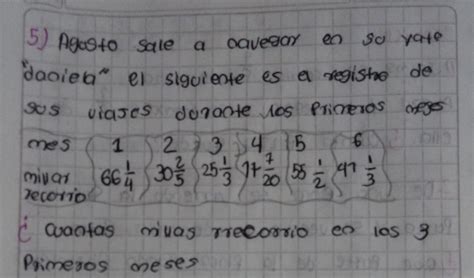 5) Agosto sale a navegar en so yate
"daniela" el siguiente es a registro de
sus viajes durante los Primeros meses
mes 1 2 3 4 5 6
millas recorrio 66 1/4 30 2/5 25 1/3 17 7/20 55 1/2 41 1/3
¿ Cuantas millas rrecorrio en los 3
Primeros meses